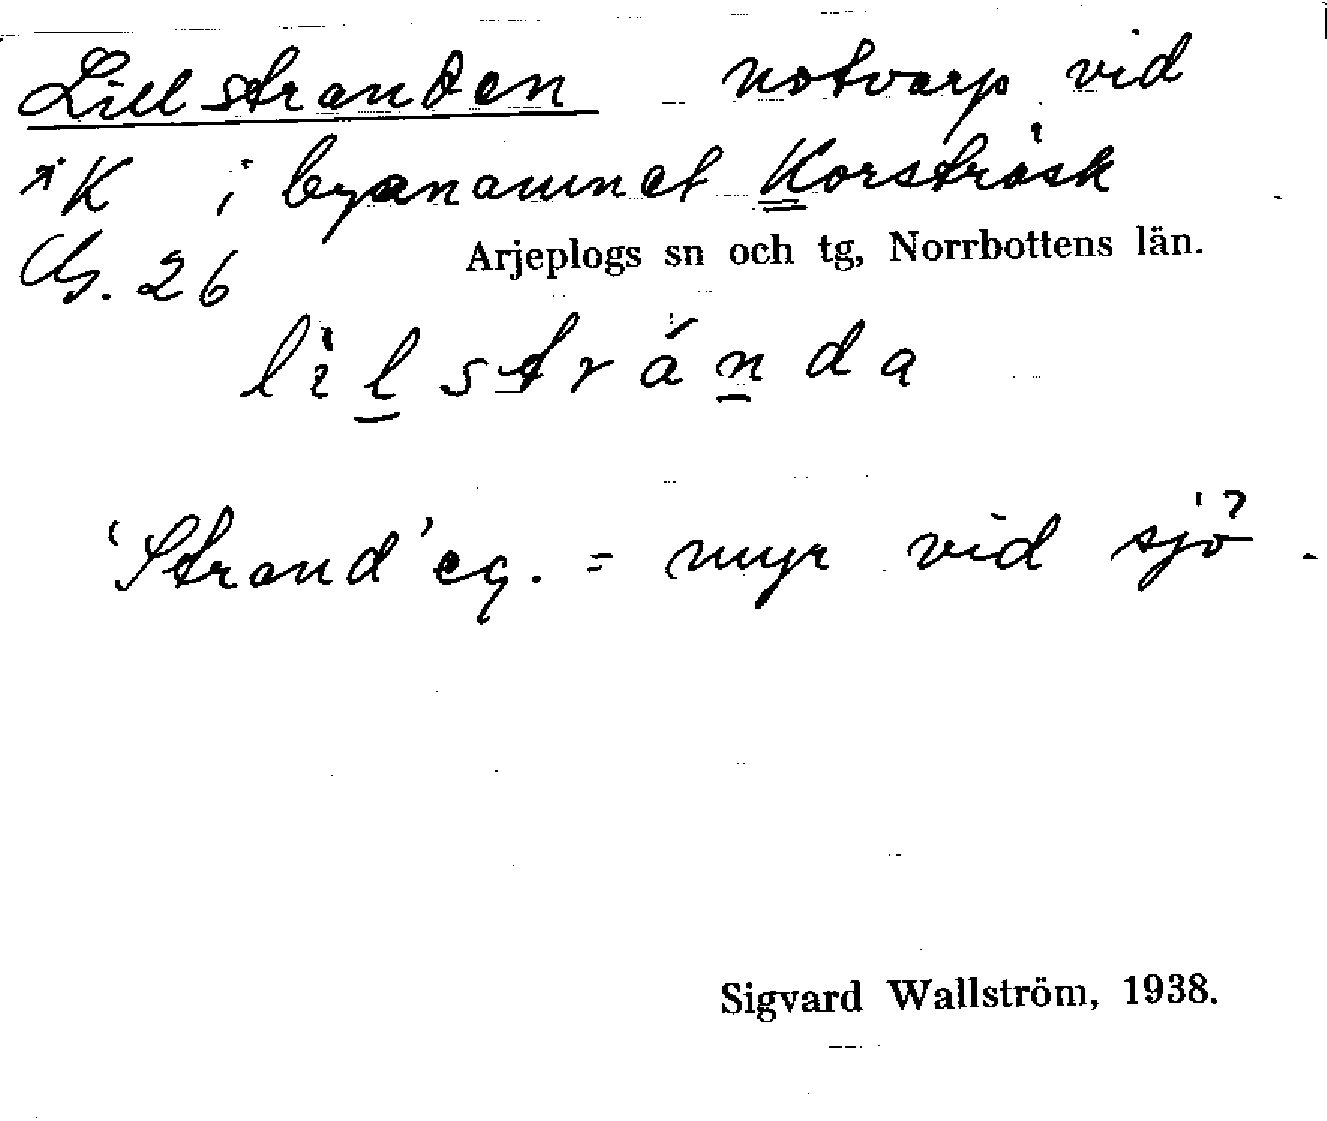 Lillstranden notvarp vid
K i bynamnet Korsträsk
26
Arjeplogs sn och tg, Norrbottens län.
lilstránda
'Strand' eg. = myr vid sjö?
Sigvard Wallström, 1938.